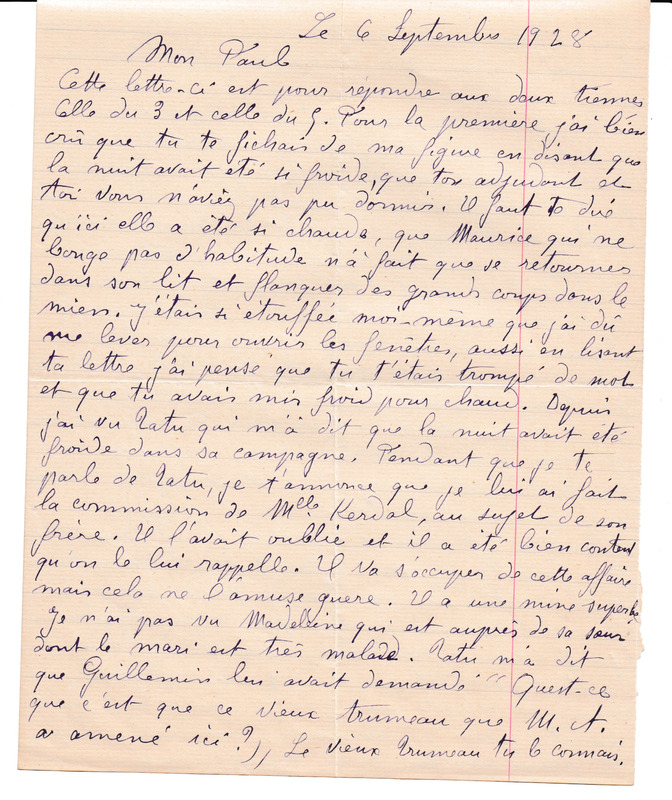 Le 6 Septembre 1928
Mon Paul
Cette lettre-ci est pour répondre aux deux tiennes
Celle du 3 et celle du 5. Pour la première, j'ai bien
crû que tu te fichais de ma figure en disant que
la nuit avait été si froide, que ton adjudant et
toi vous n'aviez pas pu dormir. Il faut te dire
qu'ici elle a été si chaude, que Maurice qui ne
bouge pas d'habitude n'a fait que se retourner
dans son lit et flanquer des grands coups dans le
mien. J'étais si étouffée moi-même que j'ai dû
me lever pour ouvrir les fenêtres, aussi en lisant
ta lettre j'ai pensé que tu t'étais trompé de mot
et que tu avais mis froid pour chaud. Depuis
j'ai vu Tatu qui m'a dit que la nuit avait été
froide dans sa campagne. Pendant que je te
parle de Tatu, je t'annonce que je lui ai fait
la commission de Melle Kerdal, au sujet de son
frère. Il l'avait oublié et il a été bien content
qu'on le lui rappelle. Il va s'occuper de cette affaire
mais cela ne l'amuse guere. Il a une mine superbe
Je n'ai pas vu Madeleine qui est auprès de sa sœur
dont le mari est très malade. Tatu m'a dit
que Guillemin lui avait demandé "Quest-ce
que c'est que ce vieux trumeau que M. A.
a amené ici?" Le vieux trumeau tu le connais.